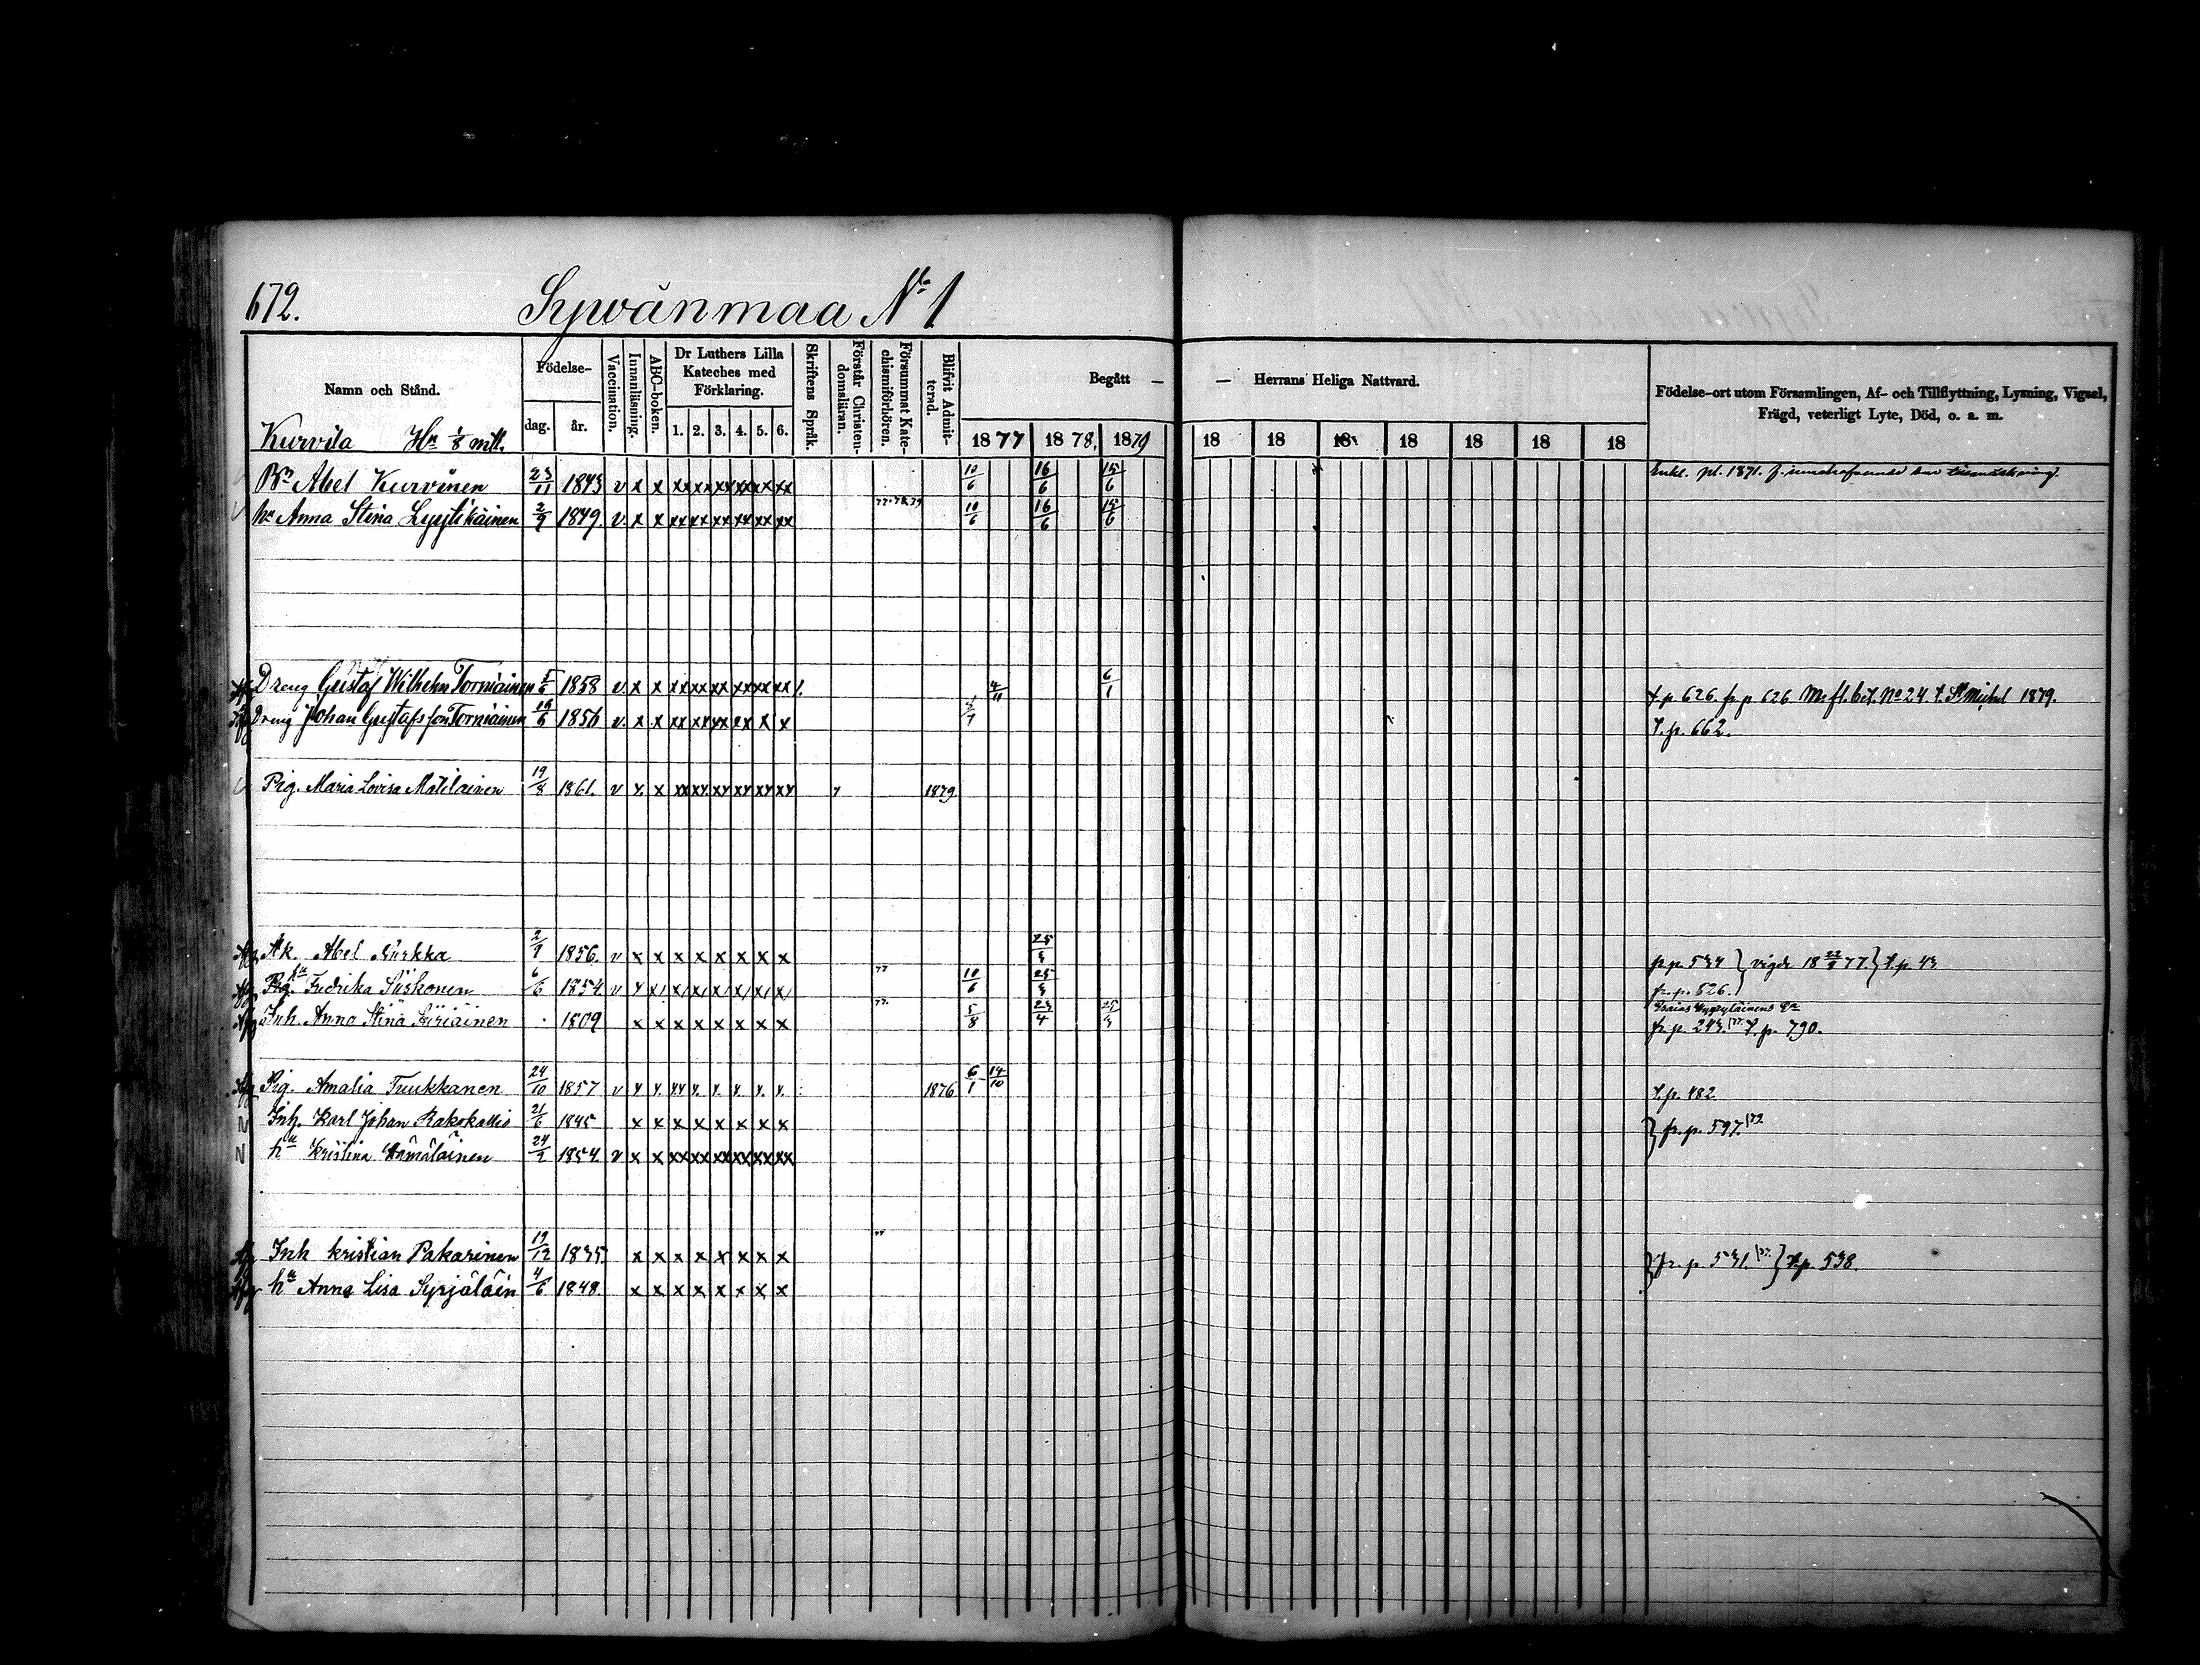 672. Sywänmaa No 1
Namn och Stånd.
Födelse-
dag.
år.
Vaccination.
Innanläsning.
ABC-boken.
Dr Luthers Lilla
Kateches med
Förklaring.
1. 2. 3. 4. 5. 6.
Skriftens Språk.
Förstår Christen-
domsläran.
Försummat Kate-
chismiförhören.
Blifvit Admit-
terad.
Begått — — Herrans Heliga Nattvard.
1877 1878. 1879 18 18 18 18 18 18 18
Födelse-ort utom Församlingen, Af- och Tillflyttning, Lysning, Vigsel,
Frägd, veterligt Lyte, Död, o. a. m.
Kurvila Hn 1/8 mtl.
Abel Kurvinen 23/11 1843 v x x xx xx xx xx xx xx 10/6 16/6 15/6
hu Anna Stina Lyytikäinen 2/9 1849. v. x x xx xx xx xx xx xx 77.78.79 10/6 16/6 15/6
Dreng Gustaf Wilhelm Torniainen 1858 v. x x xx xx xx xx xx xx 4/11 6/1 t p 626. fr p 626 No 24 t. St Michel 1879.
Dreng Johan Gustafsson Torniainen 1856 v. x x xx xx xx xx x x T. p. 662.
Pig. Maria Lovisa Matilainen 19/8 1861. v x x xx xx xx xx xx xx 1879.
Ak. Abel 2/9 1856. v x x x x x x x x 25/3 534 } vigde 77 } t. p. 43
Pig. hu Fredrika Siiskonen 6/6 1854 v x x x x x x x x 77 10/6 25/3 fr. p. 626.
Inh. Anna Stina 1809 x x x x x x x x 77. 5/8 23/4 25/3 fr p. 243. 77. T. p. 790.
Pig. Amalia Tuukkanen 24/10 1857 v x x xx x x x x x 1876 6/1 14/10 T. p. 482
Inh. Karl Johan 21/6 1845 x x x x x x x x } fr. p. 597. 79
hu Kristina Hämäläinen 1854 v x x xx xx xx xx xx xx
Inh Kristian Pakarinen 19/12 1835. x x x x x x x x } fr. p. 531. 77. } t p. 538.
hu Anna Lisa Syrjäläin 4/6 1848 x x x x x x x x